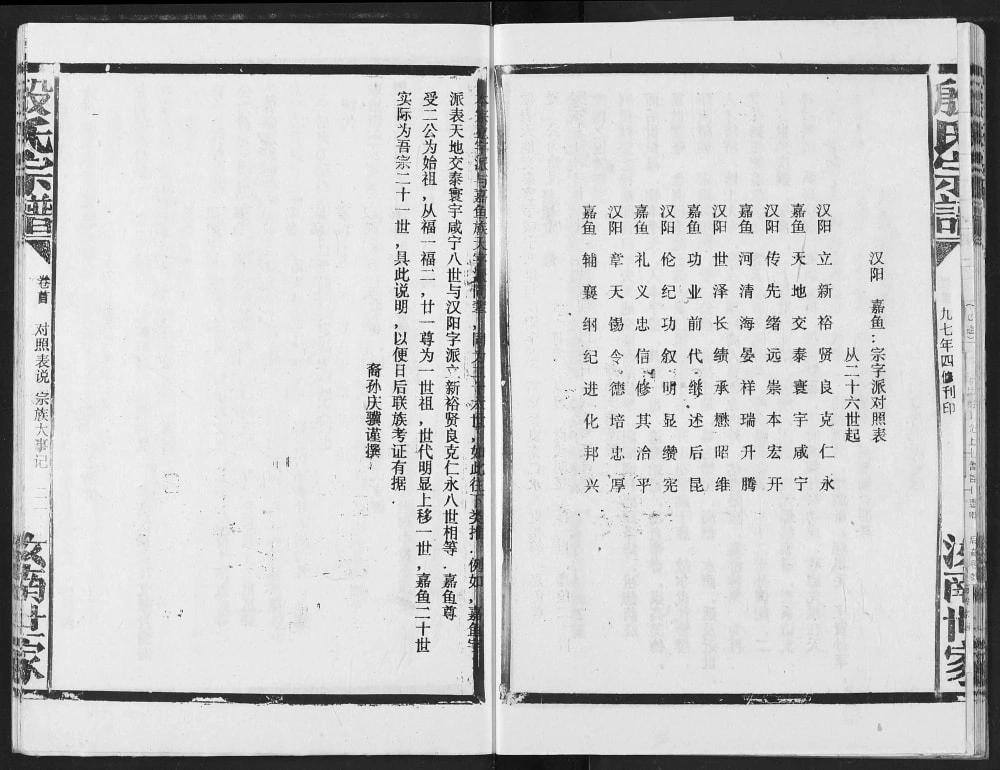 殷氏宗谱
九七年四修刊印
汝南世家
汉阳 嘉鱼:宗字派对照表
从二十六世起
汉阳 立新裕贤良克仁永
嘉鱼 天地交泰寰宇咸宁
汉阳 传先绪远崇本宏开
嘉鱼 河清海晏祥瑞升腾
汉阳 世泽长绩承懋昭维
嘉鱼 功业前代继述后昆
汉阳 伦纪功叙明显缵宪
嘉鱼 礼义忠信修其治平
汉阳 章天锡令德培忠厚
嘉鱼 辅襄纲纪进化邦兴
字派与嘉鱼族天字,如此往下类推.例如,嘉鱼字
派表天地交泰寰宇咸宁八世与汉阳字派立新裕贤良克仁永八世相等.嘉鱼尊
受二公为始祖,从福一福二,廿一尊为一世祖,世代明显上移一世,嘉鱼二十世
实际为吾宗二十一世,具此说明,以便日后联族考证有据.
裔孙庆骥谨撰
殷氏宗谱
卷首 对照表说 宗族大事记 二二
汝南世家